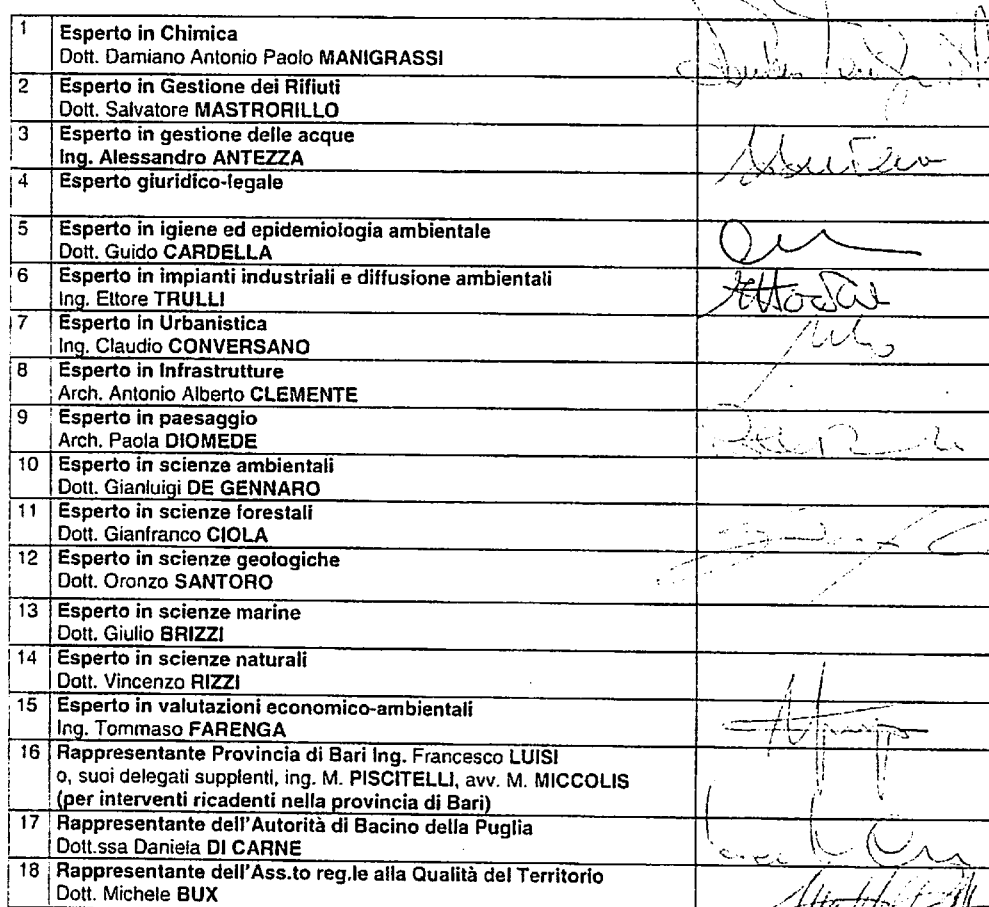 1 Esperto in Chimica
Dott. Damiano Antonio Paolo MANIGRASSI
2 Esperto in Gestione dei Rifiuti
Dott. Salvatore MASTRORILLO
3 Esperto in gestione delle acque
Ing. Alessandro ANTEZZA
4 Esperto giuridico-legale
5 Esperto in igiene ed epidemiologia ambientale
Dott. Guido CARDELLA
6 Esperto in impianti industriali e diffusione ambientali
Ing. Ettore TRULLI
7 Esperto in Urbanistica
Ing. Claudio CONVERSANO
8 Esperto in Infrastrutture
Arch. Antonio Alberto CLEMENTE
9 Esperto in paesaggio
Arch. Paola DIOMEDE
10 Esperto in scienze ambientali
Dott. Gianluigi DE GENNARO
11 Esperto in scienze forestali
Dott. Gianfranco CIOLA
12 Esperto in scienze geologiche
Dott. Oronzo SANTORO
13 Esperto in scienze marine
Dott. Giulio BRIZZI
14 Esperto in scienze naturali
Dott. Vincenzo RIZZI
15 Esperto in valutazioni economico-ambientali
Ing. Tommaso FARENGA
16 Rappresentante Provincia di Bari Ing. Francesco LUISI
o, suoi delegati supplenti, ing. M. PISCITELLI, avv. M. MICCOLIS
(per interventi ricadenti nella provincia di Bari)
17 Rappresentante dell'Autorità di Bacino della Puglia
Dott.ssa Daniela DI CARNE
18 Rappresentante dell'Ass.to reg.le alla Qualità del Territorio
Dott. Michele BUX